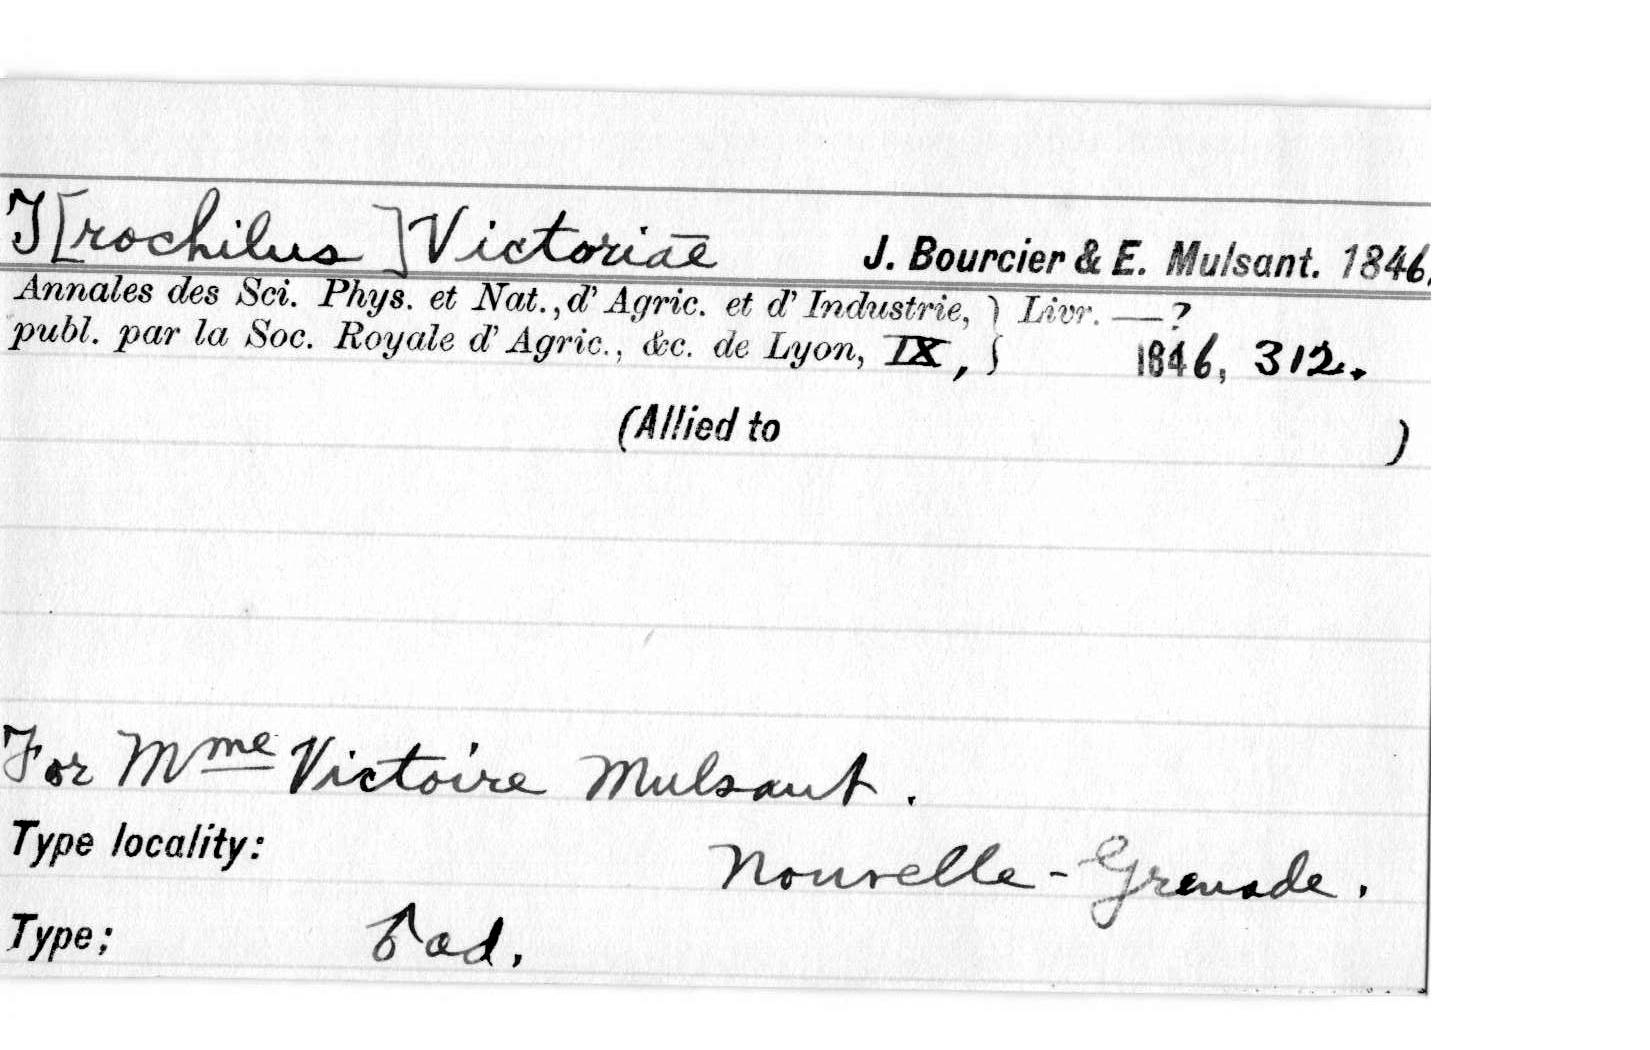 T[rochilus] Victoriae J. Bourcier & E. Mulsant. 1846.
Annales des Sci. Phys. et Nat., d'Agric. et d'Industrie, } Livr. —?
publ. par la Soc. Royale d'Agric., &c. de Lyon, IX, } 1846, 312.
(Allied to )
For Mme Victoire Mulsant.
Type locality: Nouvelle-Grenade.
Type; ♂ ad.